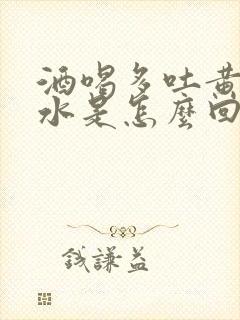 酒喝多吐黄
水是怎麽回
钱謙益